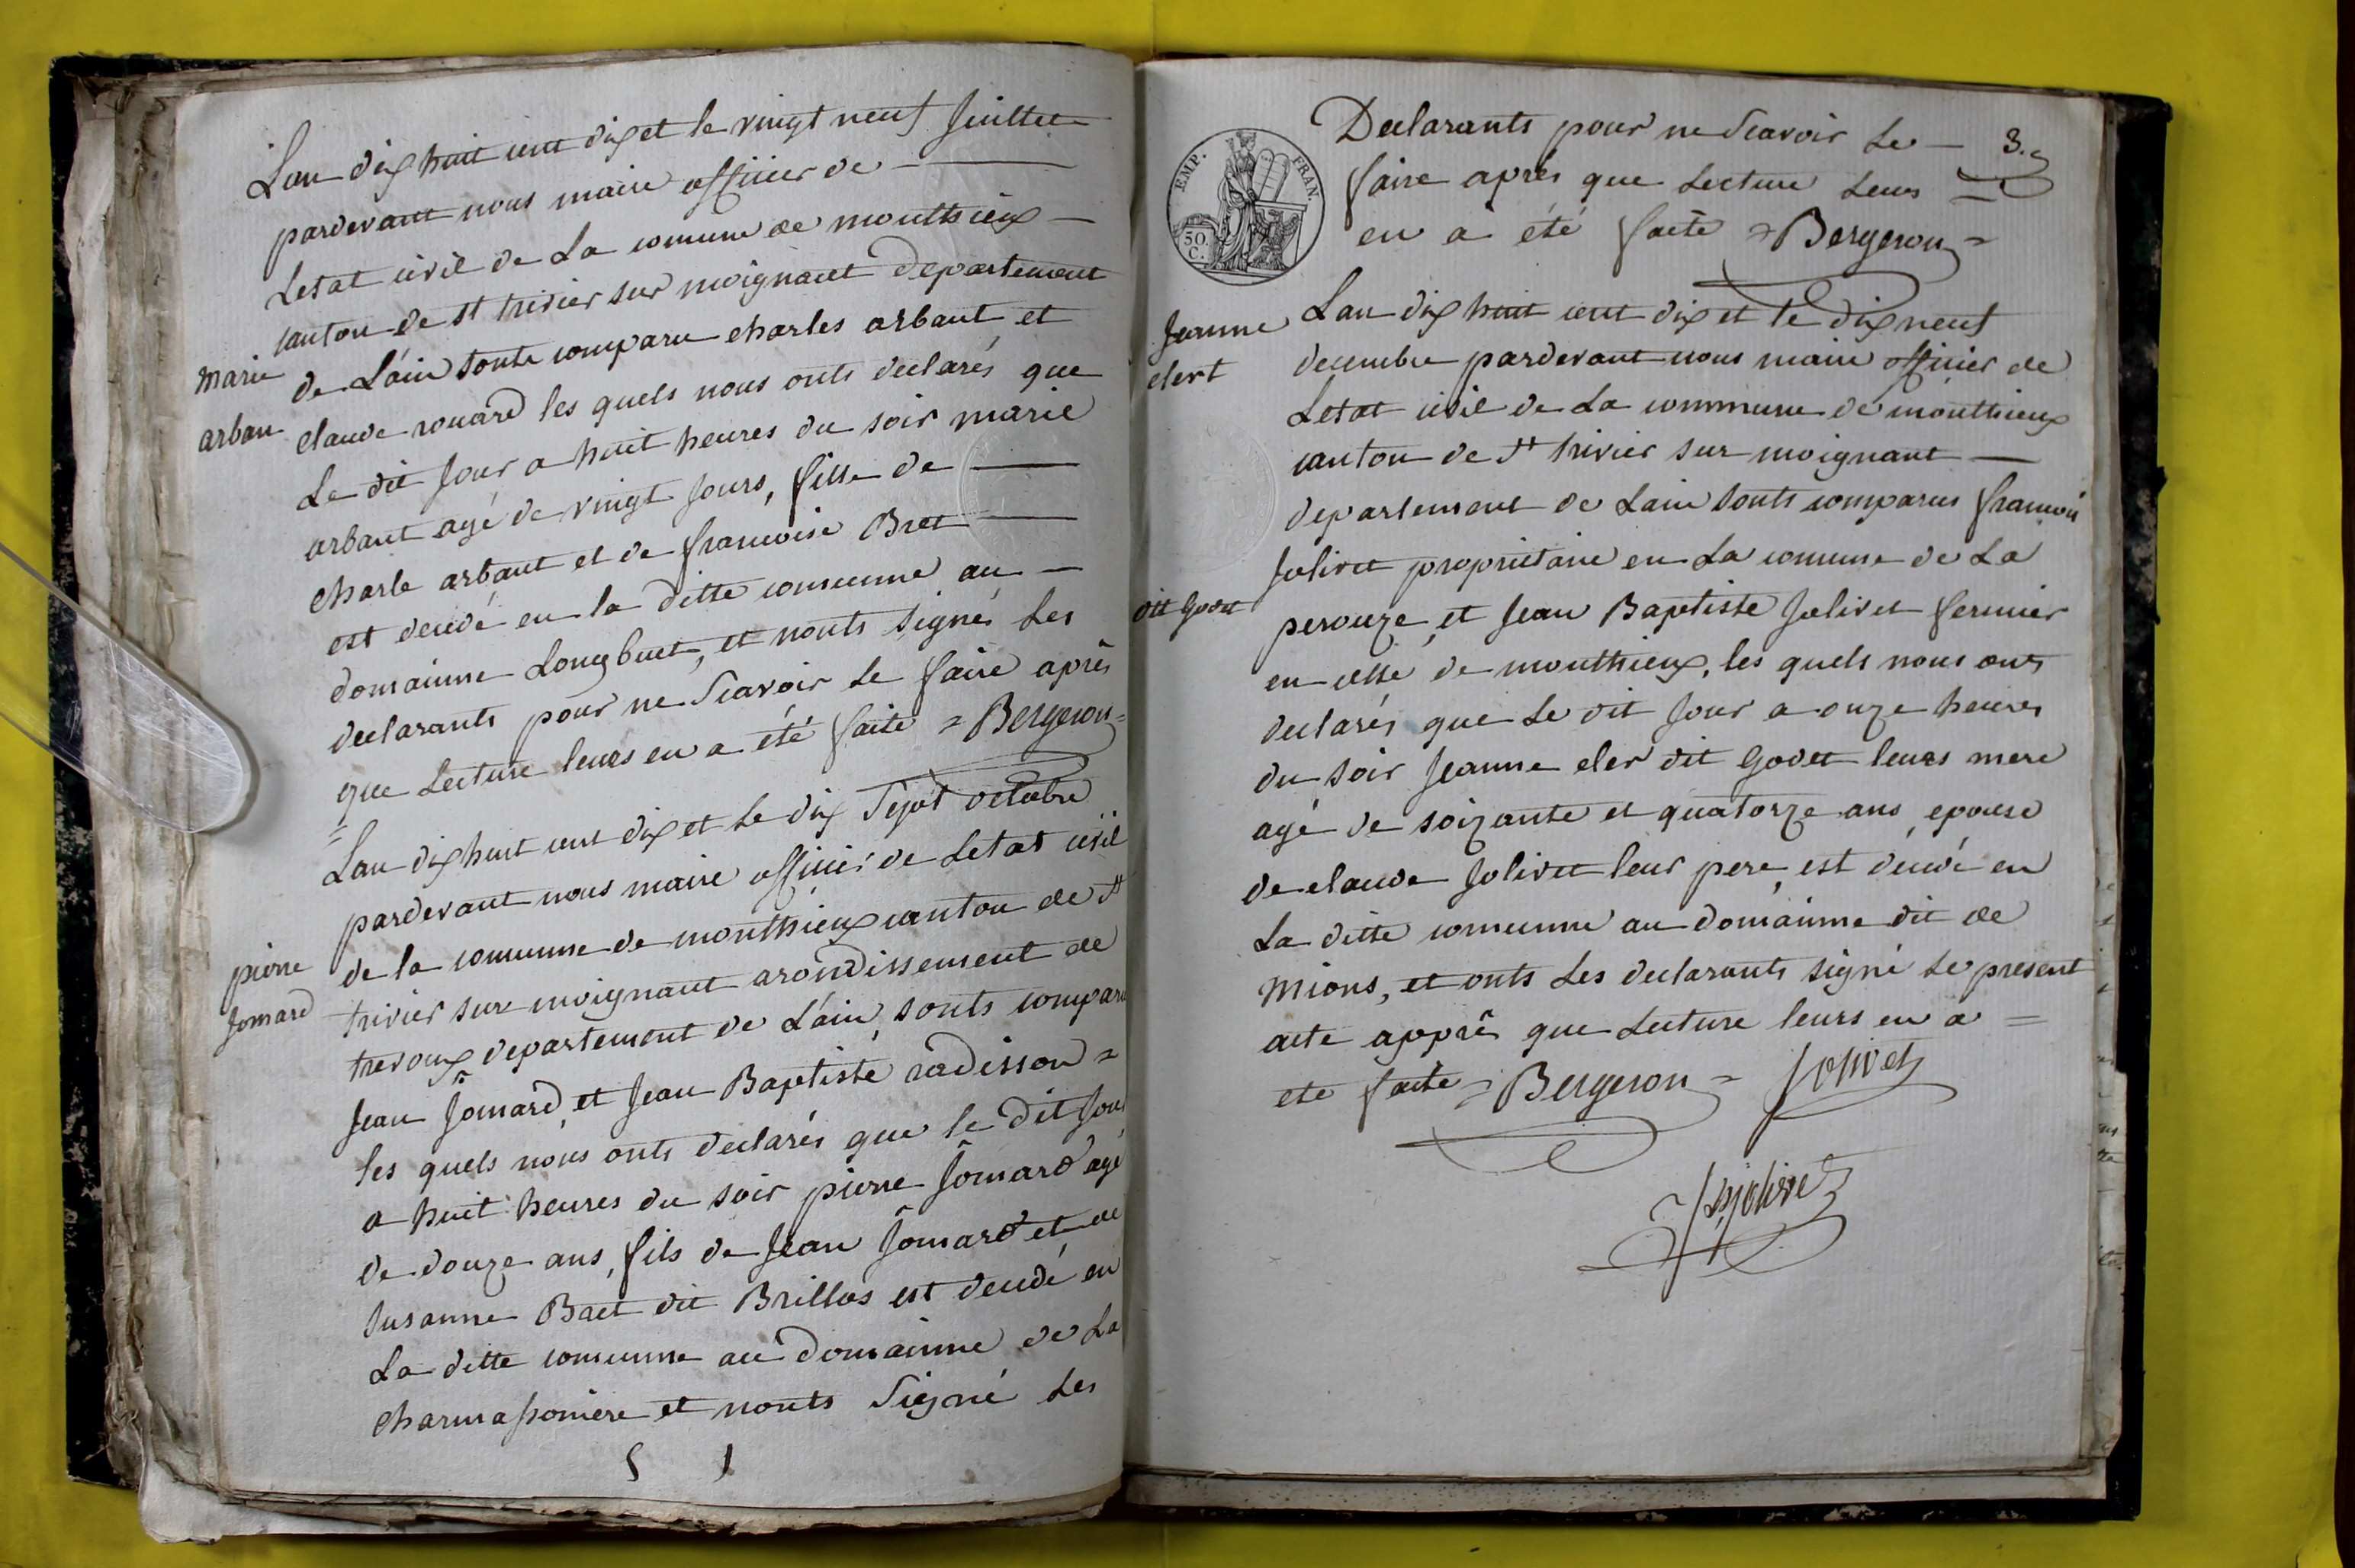 Lan dix huit cent dix et le vingt neuf Juillet
pardevant nous maire officier de
Letat civil de La comune de monthieux
canton de st trivier sur moignant departement
de L'ain sonte comparu charles arbant et
marie
arban
claude rouard les quels nous onts declarés que
Le dit Jour a huit heures du soir marie
arbant agé de vingt Jours, fille de
charle arbant et de francoise Bret
est decedé en la ditte comunne au
domainne Longbuet, et nonts signés Les
declarants pour ne Scavoir Le faire après
que Lecture leurs en a été faite = Bergeron =
= Lan dix huit cent dix et Le dix Sept octobre
pardevant nous maire officié de Letat civil
de la comunne de monthieux canton de St
pierre
Jomard
trivier sur moignant arondissement de
trevoux departement de L'ain, sonts comparu
Jean Jomard, et Jean Baptiste radisson =
les quels nous onts declarés que le dit Jour
a huit heures du soir pierre Jomard agé
de douze ans, fils de Jean Jomard et de
Susanne Bret dit Brillas est decedé en
La ditte comunne au Domainne de La
charmassonière et nonts Signé Les
Declarants pour ne Scavoir Le
3.
faire après que Lecture Leurs
en a été faite = Bergeron =
EMP. FRAN.
50.
C.
Jeanne
clert
Lan dix huit cent dix et le dix neuf
decembre pardevant nous maire officier de
Letat civil de La commune de monthieux
canton de St trivier sur moignant
departement de Lain sonts comparus francois
Jolivet proprietaire en La comune de La
dit Godet
perouze, et Jean Baptiste Jolivet fermier
en celle de monthieux, les quels nous onts
declarés que Le dit Jour a onze heures
du soir Jeanne cler dit Godet leurs mere
agé de soizante et quatorze ans, epouse
de claude Jolivet leur pere, est decedé en
La ditte comunne au domainne dit de
Mions, et onts Les declarants signé Le present
acte apprès que Lecture leurs en a =
eté faite = Bergeron = Jolivet
JB Jolivet